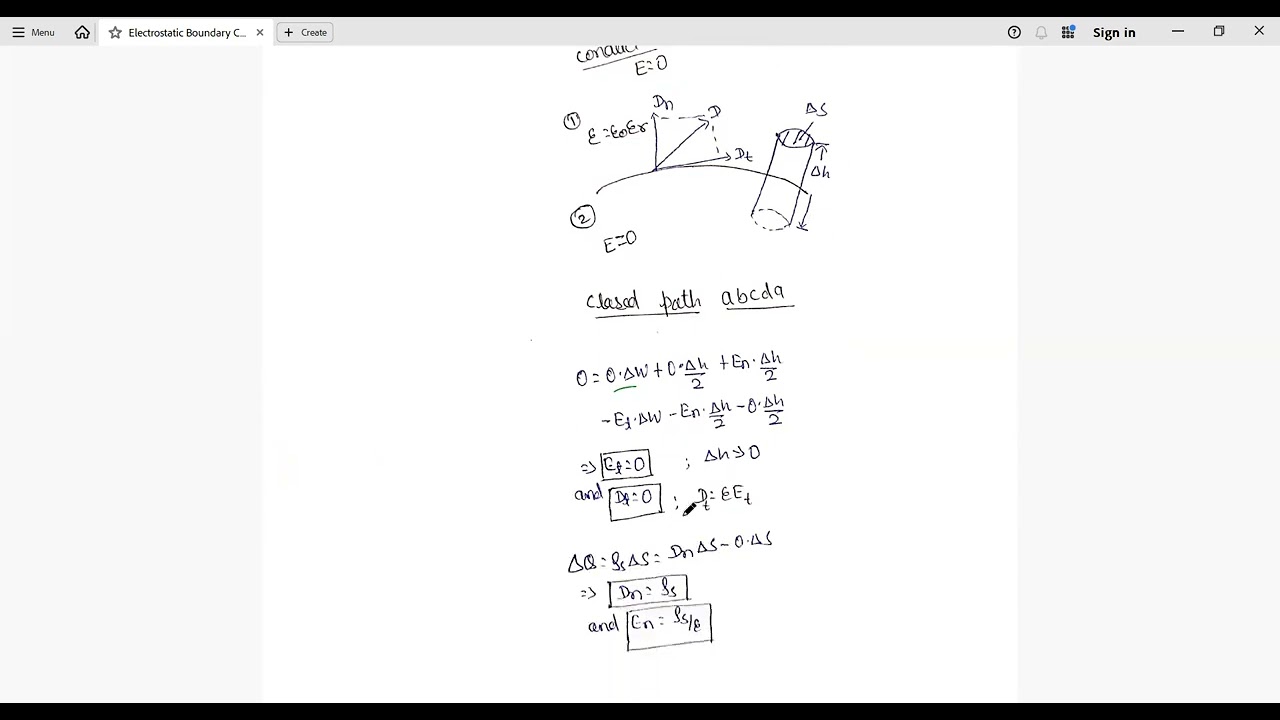 Menu
Electrostatic Boundary C...
Create
Sign in
E=0
①
ε=ε₀εr
Dn
D
Dt
ΔS
Δh
②
E=0
Closed path abcda
0 = 0·ΔW + 0·Δh/2 + En·Δh/2
-Et·ΔW - En·Δh/2 - 0·Δh/2
⇒ Et=0 ; Δh→0
and Dt=0 ; Dt=εEt
ΔQ = ρsΔS = DnΔS - 0·ΔS
⇒ Dn = ρs
and En = ρs/ε